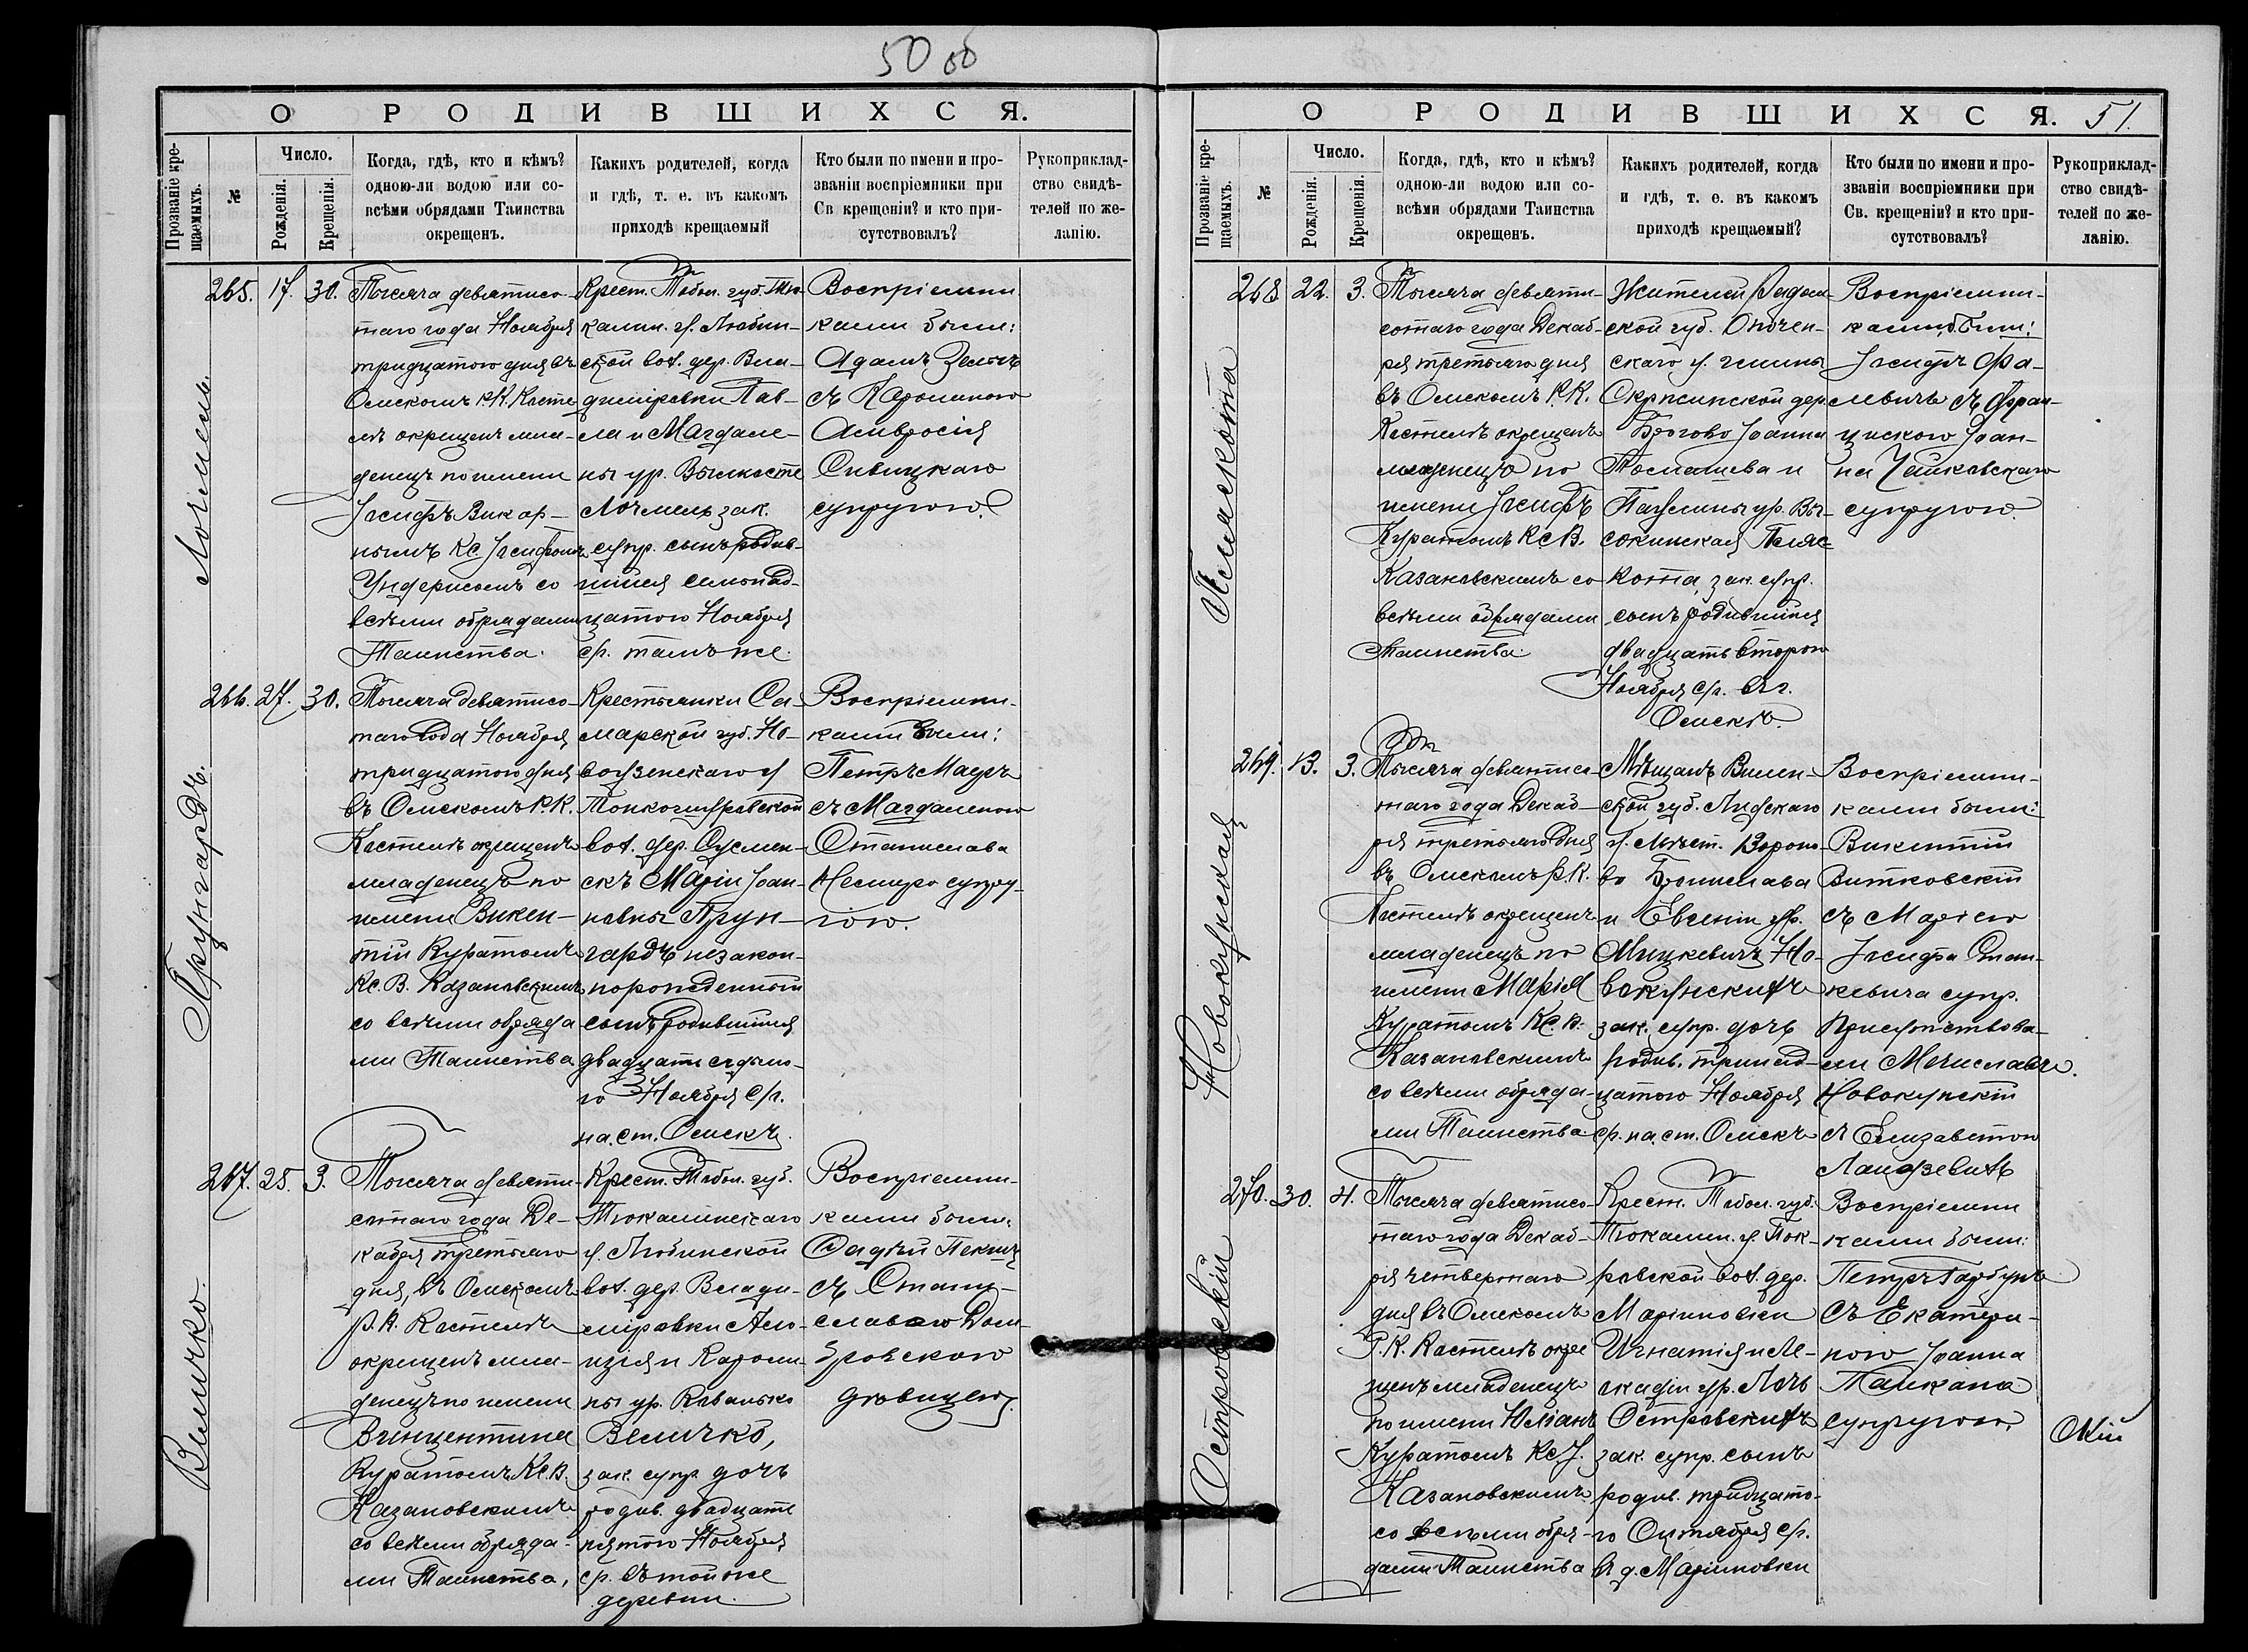 50 об
О РОДИВШИХСЯ.
Прозваніе крещаемыхъ.
№
Число.
Рожденія.
Крещенія.
Когда, гдѣ, кто и кѣмъ?
одною-ли водою или со-
всѣми обрядами Таинства
окрещенъ.
Какихъ родителей, когда
и гдѣ, т. е. въ какомъ
приходѣ крещаемый
Кто были по имени и про-
званіи воспріемники при
Св крещеніи? и кто при-
сутствовалъ?
Рукоприклад-
ство свидѣ-
телей по же-
ланію.
265. 17. 30.
Тысяча девятисо-
таго года Ноября
тридцатого дня въ
Омскомъ Р.К. Косте
лѣ окрещенъ мла-
денецъ по имени
Іосифъ Викар-
нымъ Кс. Іосифомъ
со
всѣми обрядами
Таинства.
Крест. Тобол. губ. Тю-
калин. у. Любин-
ской вол. дер. Вла-
диміровки Пав-
ла и Магдале-
ны ур.
зак.
супр. сынъ родив-
шійся семнад-
цатого Ноября
с/г. тамъ же.
Воспріемни
ками были:
Адамъ
съ Каролиною
Амвросія
Сивицкаго
супругою.
Грунгардъ.
266. 27. 30.
Тысяча девятисо-
таго года Ноября
тридцатого дня
въ Омскомъ Р.К.
Костелѣ окрещенъ
младенецъ по
имени Викен-
тій Куратомъ
Кс. В. Казановскимъ
со всѣми обряда
ми Таинства
Крестьянки Са-
марской губ. Но-
воузенскаго у
вол. дер.
Маріи Іоан-
новны Грун-
гардъ незакон-
норожденный
сынъ родившійся
двадцати седьмо-
го Ноября с/г.
на ст. Омскъ.
Воспріемни-
ками были:
Петръ Мауръ
съ Магдаленою
Станислава
супру-
гою.
Величко.
267. 25. 3.
Тысяча девяти-
сотаго года Де-
кабря третьяго
дня, въ Омскомъ
Р.К. Костелѣ
окрещенъ мла-
денецъ по имени
Винцентина
Куратомъ Кс. В.
Казановскимъ
со всѣми обряда-
ми Таинства,
Крест. Тобол. губ.
Тюкалинскаго
у. Любинской
вол. дер. Влади-
міровки Ало-
изія и Кароли-
ны ур. Ковалько
Величко,
зак. супр дочь
родив. двадцать
пятого Ноября
с/г. въ той же
деревни.
Воспріемни-
ками были:
съ Стани-
славою Дом-
бровскою
дѣвицею.
О РОДИВШИХСЯ. 51.
Прозваніе крещаемыхъ.
№
Число.
Рожденія.
Крещенія.
Когда, гдѣ, кто и кѣмъ?
одною-ли водою или со-
всѣми обрядами Таинства
окрещенъ.
Какихъ родителей, когда
и гдѣ, т. е. въ какомъ
приходѣ крещаемый?
Кто были по имени и про-
званіи воспріемники при
Св. крещеніи? и кто при-
сутствовалъ?
Рукоприклад-
ство свидѣ-
телей по же-
ланію.
Пляскота
268 22. 3.
Тысяча девяти-
сотаго года Декаб-
ря третьяго дня
въ Омскомъ Р.К.
Костелѣ окрещенъ
младенецъ по
имени Іосифъ
Куратомъ Кс В.
Казановскимъ со
всѣми обрядами
Таинства.
Жители Радом-
ской губ. Опочен-
скаго у. гмины
дер.
Іоанна
и
Паулины ур. Вы-
сокинская Пляс-
кота, зак. супр.
сынъ родившійся
двадцать второго
Ноября с/г. въ г.
Омскѣ.
Воспріемни-
ками были:
Іосифъ Фа-
левичъ съ Фран-
цискою Іоан-
на Чайковскаго
супругою.
Новокунская
269. 13. 3.
Тысяча девятисо-
таго года Декаб-
ря третьяго Дня
въ Омскомъ Р.К.
Костелѣ окрещенъ
младенецъ по
имени Марія
Куратомъ Кс В.
Казановскимъ
со всѣми обряда-
ми Таинства.
Мѣщанъ Вилен-
ской губ. Лидскаго
у. Мѣст. Вороно-
во Бонислава
и Евгеніи ур.
Мицкевичъ Но-
вокунскихъ
зак. супр. дочь
родив. тринад-
цатого Ноября
с/г. на ст. Омскъ
Воспріемни-
ками были:
Викентій
Витковскій
съ Маріею
Іосифа Стан-
кевича супр.
Присутствова-
ли Мечиславъ
Новокунскій
съ Елизаветою
Ландзевичъ
Островскій
270. 30. 4.
Тысяча девятисо-
таго года Декаб-
ря четвертаго
дня въ Омскомъ
Р.К. Костелѣ окре
щенъ младенецъ
по имени Юліанъ
Куратомъ Кс J.
Казановскимъ
со всѣми обря-
дами Таинства
Крест. Тобол. губ.
Тюкалин. у. Пок-
ровской вол. дер.
Маріиновки
Игнатія и Ле-
окадіи ур.
Островскихъ
зак. супр. сынъ
родив. тридцато-
го Октября с/г.
въ д. Маріиновки
Воспріемни
ками были:
Петръ Гарбузъ
съ Екатери-
ною Іоанна
супругою.